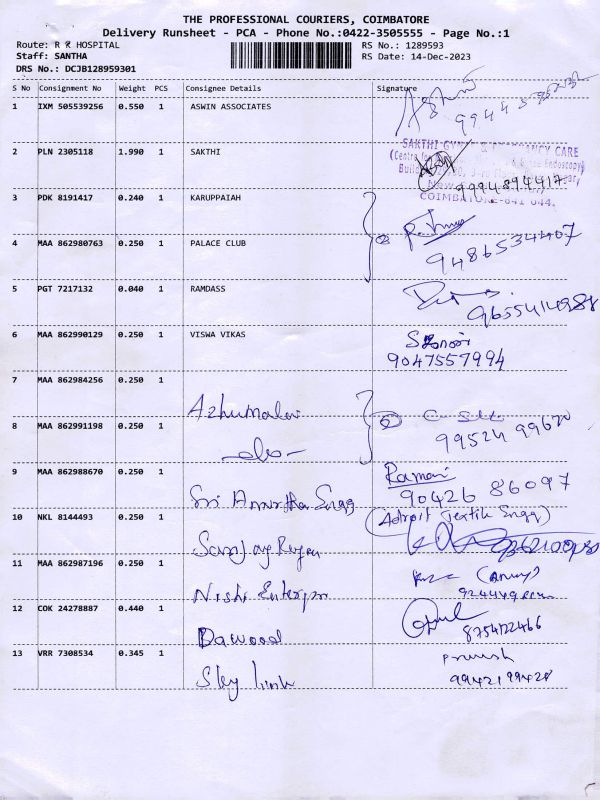 THE PROFESSIONAL COURIERS, COIMBATORE
Delivery Runsheet - PCA - Phone No.:0422-3505555 - Page No.:1
Route: R K HOSPITAL
Staff: SANTHA
DRS No.: DCJB128959301
RS No.: 1289593
RS Date: 14-Dec-2023
S No Consignment No Weight PCS Consignee Details Signature
1 IXM 505539256 0.550 1 ASWIN ASSOCIATES
2 PLN 2305118 1.990 1 SAKTHI
SAKTHI
CARE
(Centre for
Endoscopy)
9994894417
COIMBATORE-641 044.
3 PDK 8191417 0.240 1 KARUPPAIAH
4 MAA 862980763 0.250 1 PALACE CLUB
② 9486534407
5 PGT 7217132 0.040 1 RAMDASS
9655414988
6 MAA 862990129 0.250 1 VISWA VIKAS
9047557994
7 MAA 862984256 0.250 1
8 MAA 862991198 0.250 1
② 99524 99620
-do-
9 MAA 862988670 0.250 1
Ramani
90426 86097
Sri Amirtha Engg
10 NKL 8144493 0.250 1
(Adroit Textile Engg)
11 MAA 862987196 0.250 1
Nisha Enterpr
12 COK 24278887 0.440 1
8754122466
Dawood
13 VRR 7308534 0.345 1
99421 99428
Sky link